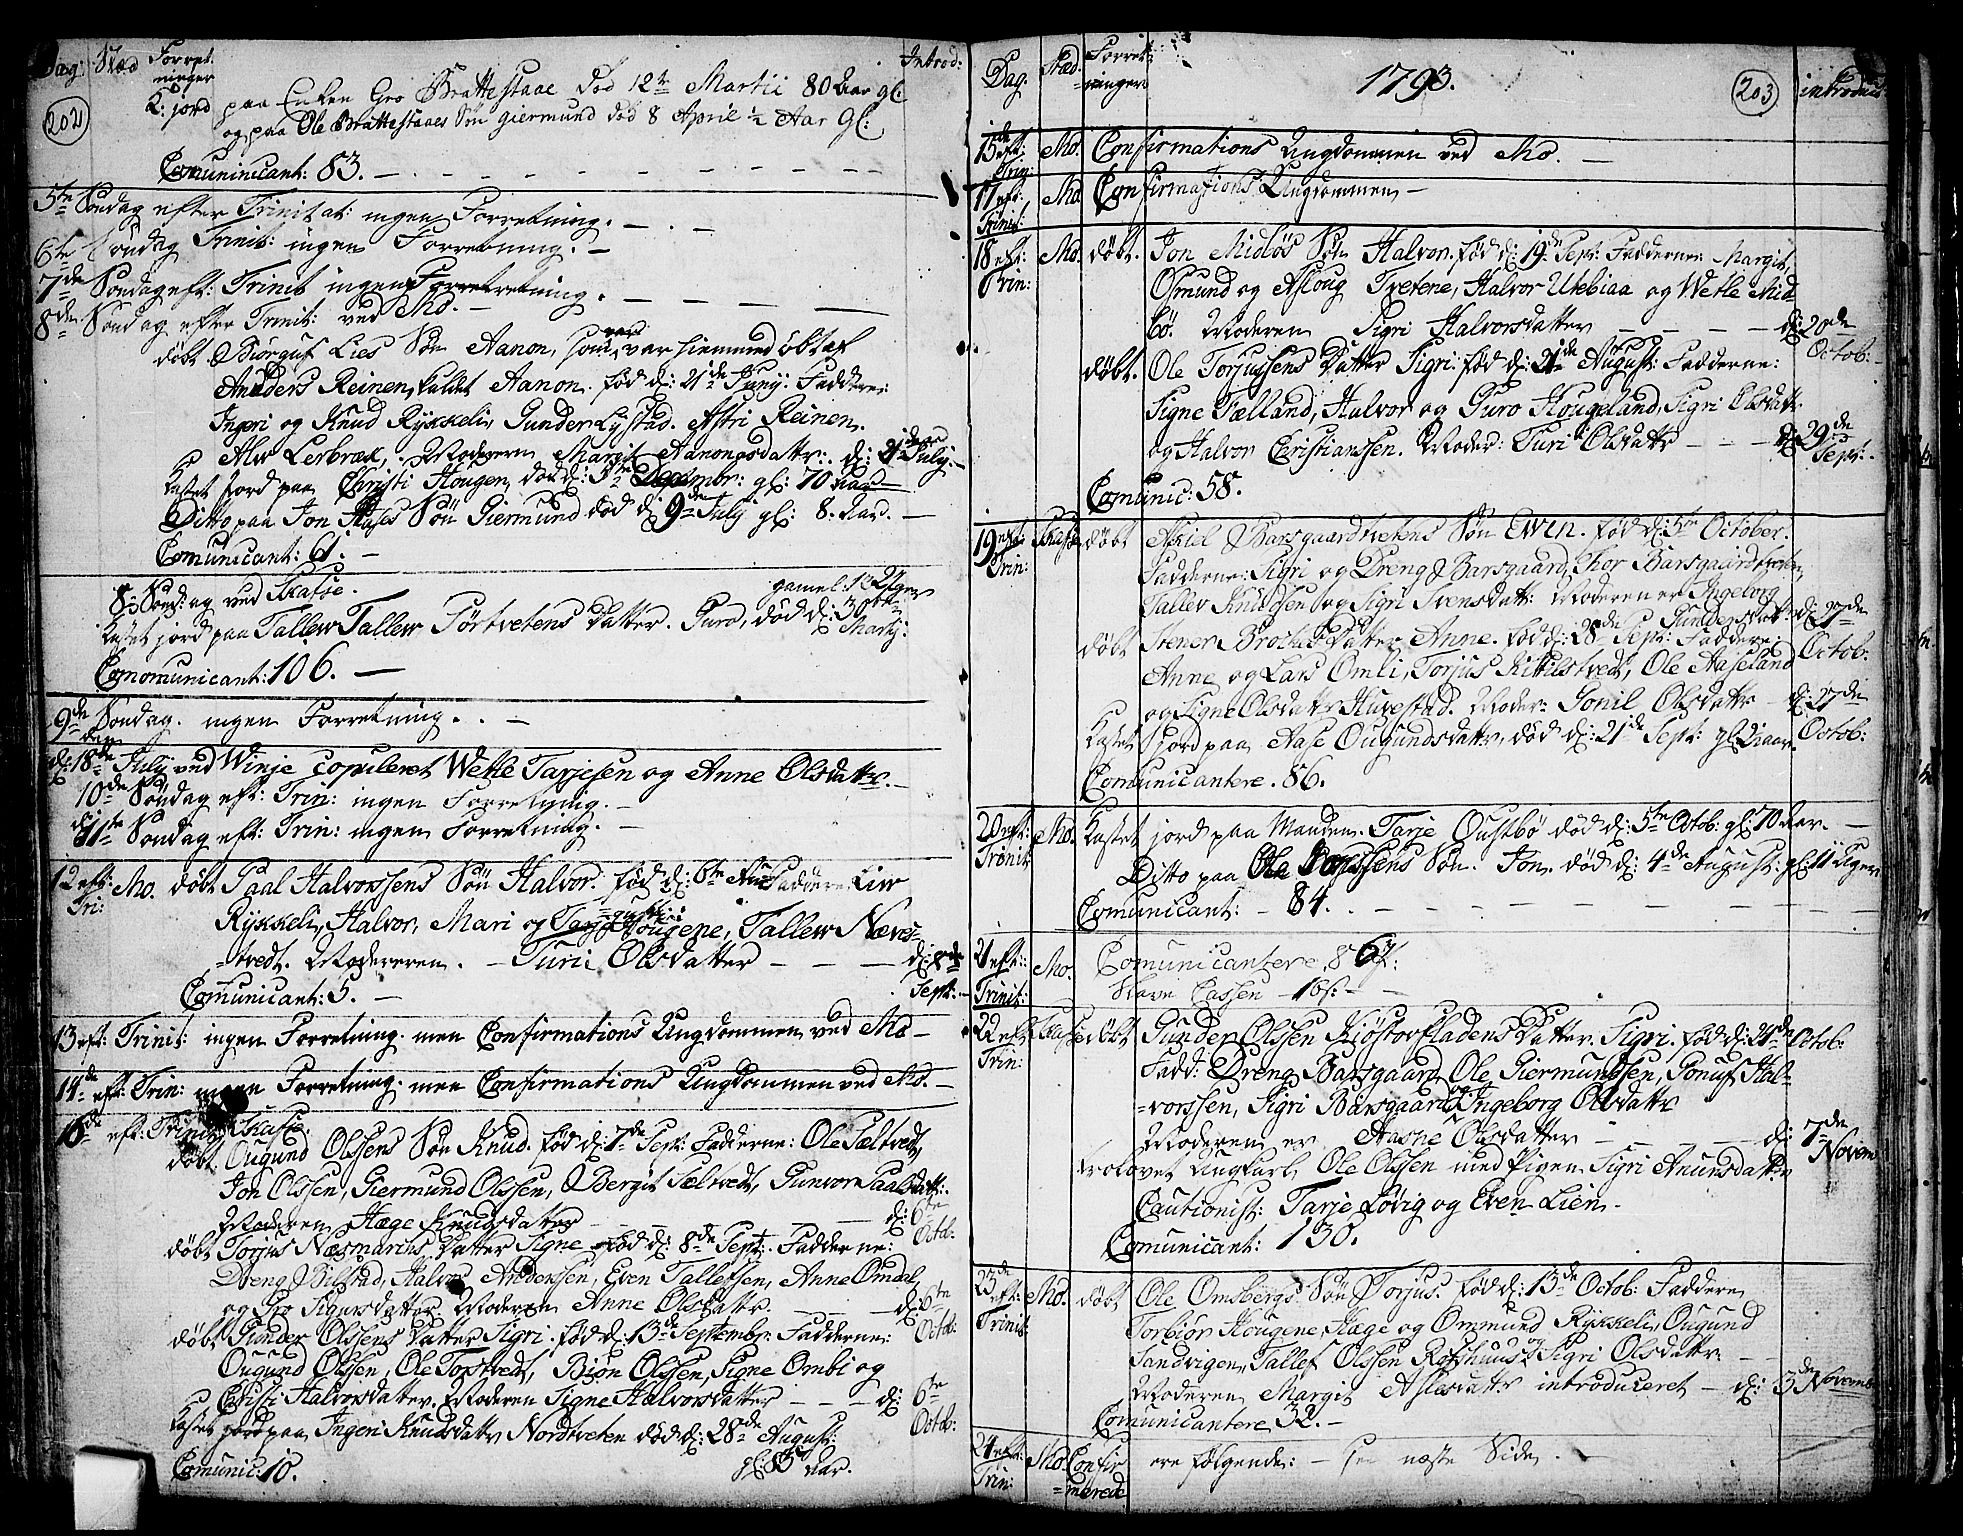 Dag: Stæd Forret ninger Introd:
202
K: jord paa Enken Gro Brattestaae død 12te Martii 80 Aar gl:
og paa Ole Brattestaaes Søn Giermund død 8 April ½ Aar Gl:
Comuninicant: 83. —
5te Søndag efter Trinitat: ingen Forretning. —
6te Søndag Trinit: ingen Forretning. —
7de Søndag eft: Trinit ingen Forretretning. —
8de Søndag efter Trinit: ved Mo. —
døbt Biørguf Lies Søn Aanon, som var hiemmedøbt af
Anders Reinen, kaldet Aanon. fød d: 21de Junij. Faddere:
Ingeri og Knud Rykkeli, Gunder Lystad. Astri Reinen.
Alw Lerbræk, Moderen Margit Aanonsdattr: d: 21de July. —
Kastet jord paa Christi Hougen, død d: 5te Decembr: gl: 70 Aar —
Ditto paa Jon Aases Søn Giermund død d: 9de July gl: 8. Aar. —
Comunicant: 61. —
8: Sønd: ag ved Skafse.
gamel: 12 Uger
Kastet jord paa Tallew Tallew Førtvetens Datter. Guro, død d: 30te Martij:
Comomunicant: 106. —
9de Søndag. ingen Forretning. . —
d: 18de July ved Winje copuleret Wetle Tarjesen og Anne Olsdattr. —
10de Søndag eft: Trin: ingen Forretning. —
d: 11te Søndag eft: Trin: ingen Forretning. —
12 eft: Tri: Mo. døbt Paal Halvorssens Søn Halvor. fød d: 6te Au= Faddere Liw
=gustii
Rykkeli, Halvor, Mari og Hougene, Tallew Næves=
=tvedt. Modereren. — Turi Olsdatter — — — d: 8de
Comunicant: 5. — Sept: —
13 eft: Trinit: ingen Forretning. men Confirmations Ungdommen ved Mo —
14de eft: Trin: ingen Forretning. men Confirmations Ungdommen ved Mo. —
16de eft: Trinit: Skafse.
døbt Ougund Olssens Søn Knud. fød d: 7de Sept: Fadderne: Ole Sæltvedt,
Jon Olssen, Giermund Olssen, Bergit Sæltvedt, Gunvor Paalsdatt:
Moderen Hæge Knudsdatter — — — d: 6te Octob:
døbt Torjus Næsmarchs Datter Signe fød d: 8de Sept: Fadderne:
Dreng Bilstad, Halvor Anderssen, Even Tallefsen, Anne Omdal,
og Gro Sigursdatter. Moderen Anne Olsdattr. — — d: 6te Octob:
døbt Gunder Olssens Datter Sigri. fød d: 13de Septembr: Fadderne:
Ougund Olssen, Ole Tostvedt, Biøn Olssen, Signe Ombi og
Christi Halvorsdatter. Moderen Signe Halvorsdatter — — — d: 6te Octob:
Kastet jord paa Ingeri Knudsdattr Nordtveten død d: 28de August:
Comunic: 10. gl: 83 Aar.
Dag. Stæd. Forret =ninger 1793. 203 introduc
15de eft: Trin: Mo. Confirmations Ungdommen ved Mo. —
17 eft: Trinit: Mo Confirmations Ungdommen —
18 eft: Trin: Mo. døbt. Jon Midbøs Søn Halvor. fød d: 19de Sept: Fadderne: Margit,
Osmund og Asloug Tvetene, Halvor Utebiaa og Wetle Mid
bø. Moderen — Sigri Halvorsdatter — — — — d: 20de Octob: —
døbt. Ole Torjussens Datter Sigri. fød d: 21de August: Fadderne:
Signe Fælland, Halvor og Guro Hougeland, Sigri Olsdattr
og Halvor Christianssen. Moder: Turi Olsdattr — — — d: 29de Sept:
Comunic: 58.
19 eft: Trin: Skafse døbt Askiel Barsgaardtvetens Søn Ewen. fød d: 5te October.
Fadderne: Sigri og Dreng Barsgaard, Thor Barsgaardtveten,
Tallev Knudsen og Sigri Svensdatt: Moderen er Ingeborg
Gundersdatter d: 27de Octob:
døbt Stener Brobas Datter Anne. fød d: 28de Sept: Faddere:
Anne og Lars Omli, Torjus Kittilstvedt, Ole Aaseland
og Signe Olsdattr Huvestad. Moder: Gonil Olsdattr — d: 27de Octob:
Kastet jord paa Aase Ougundsdattr, død d: 21de Sept: gl: 2 aar
Comunicantere. 86.
20 eft: Trinit Mo. Kastet jord paa Manden. Tarje Oustbø død d: 5te Octob: gl: 70 Aar. —
Ditto paa Ole Søn. Jon. død d: 4de August: gl: 11 Uger
Comunicant: — 84. — — — — — — —
21 eft: Trinit: Mo. Comunicantere. 86
16
22 eft Trin: Skafse døbt Gunder Olssen Kiøstovfladens Datter. Sigri. fød d: 21de Octob:
Fadd: Dreng Barsgaard, Ole Giermundsen, Gonuf Hal=
=vorssen, Sigri Barsgaard og Ingeborg Olsdattr
Moderen er Aasne Olsdatter — — — — d: 7de Novem
trolovet Ungkarl Ole Olssen med Pigen Sigri Anunsdatter
Cautionist: Tarje Løvig og Even Lien. —
Comunicant: 130.
23de eft: Trinit: Mo. døbt Ole Omsbergs Søn Torjus. fød d: 13de Octob: Faddere
Torbiør Hougene, Hæge og Ommund Rykkeli, Ougund
Sandvigen, Tallef Olssen Roshuus og Sigri Olsdattr —
Moderen Margit Aslesdattr introduceret — d: 3de Novemb
Comunicantere 32. —
24 eft: Trin: Mo. Confir =merede ere følgende: — see næste Side. —